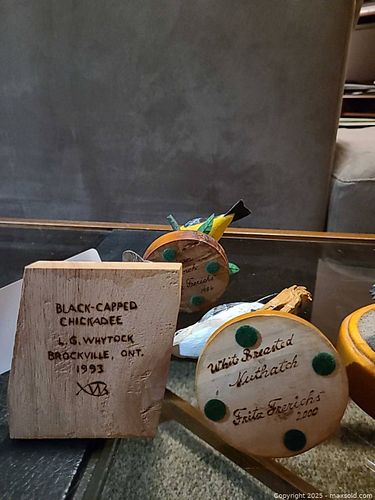 BLACK-CAPPED
CHICKADEE
L.G. WHYTOCK
BROCKVILLE, ONT.
1993
White Breasted
Nuthatch
Frita Frerichs
2000
Frerichs
Copyright 2025 - maxsold.com